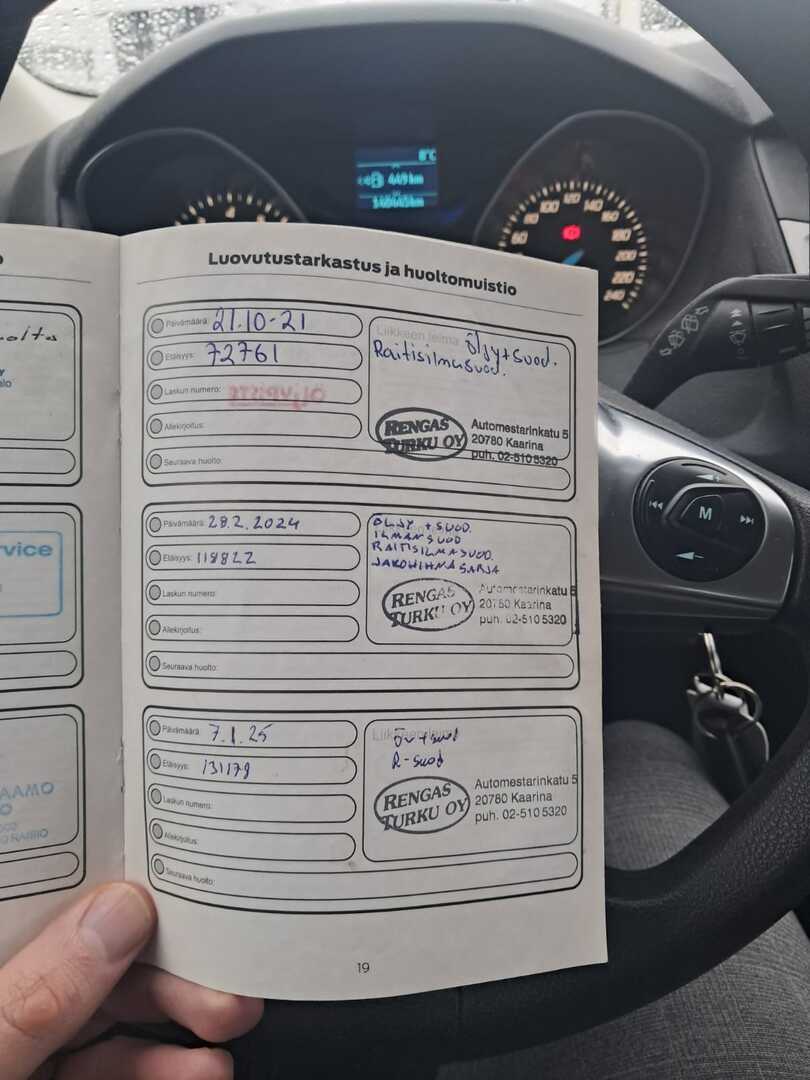 8°C
449 km
Luovutustarkastus ja huoltomuistio
Päivämäärä: 21.10-21
Etäisyys: 72761
Laskun numero:
Allekirjoitus:
Seuraava huolto:
Liikkeen leima
ÖLJY + SUOD.
Raitisilmasuod.
RENGAS
TURKU OY
Automestarinkatu 5
20780 Kaarina
puh. 02-510 5320
Päivämäärä: 28.2.2024
Etäisyys: 118822
Laskun numero:
Allekirjoitus:
Seuraava huolto:
ÖLJY + SUOD.
ILMANSUOD
RAITISILMASUOD.
JAKOHIHNASARJA
RENGAS
TURKU OY
Automestarinkatu 5
20780 Kaarina
puh. 02-510 5320
Päivämäärä: 7.1.25
Etäisyys: 131179
Laskun numero:
Allekirjoitus:
Seuraava huolto:
R-suod
RENGAS
TURKU OY
Automestarinkatu 5
20780 Kaarina
puh. 02-510 5320
19
rvice
AAMO
RAISIO
60
80
100
120
140
160
180
200
220
240
M